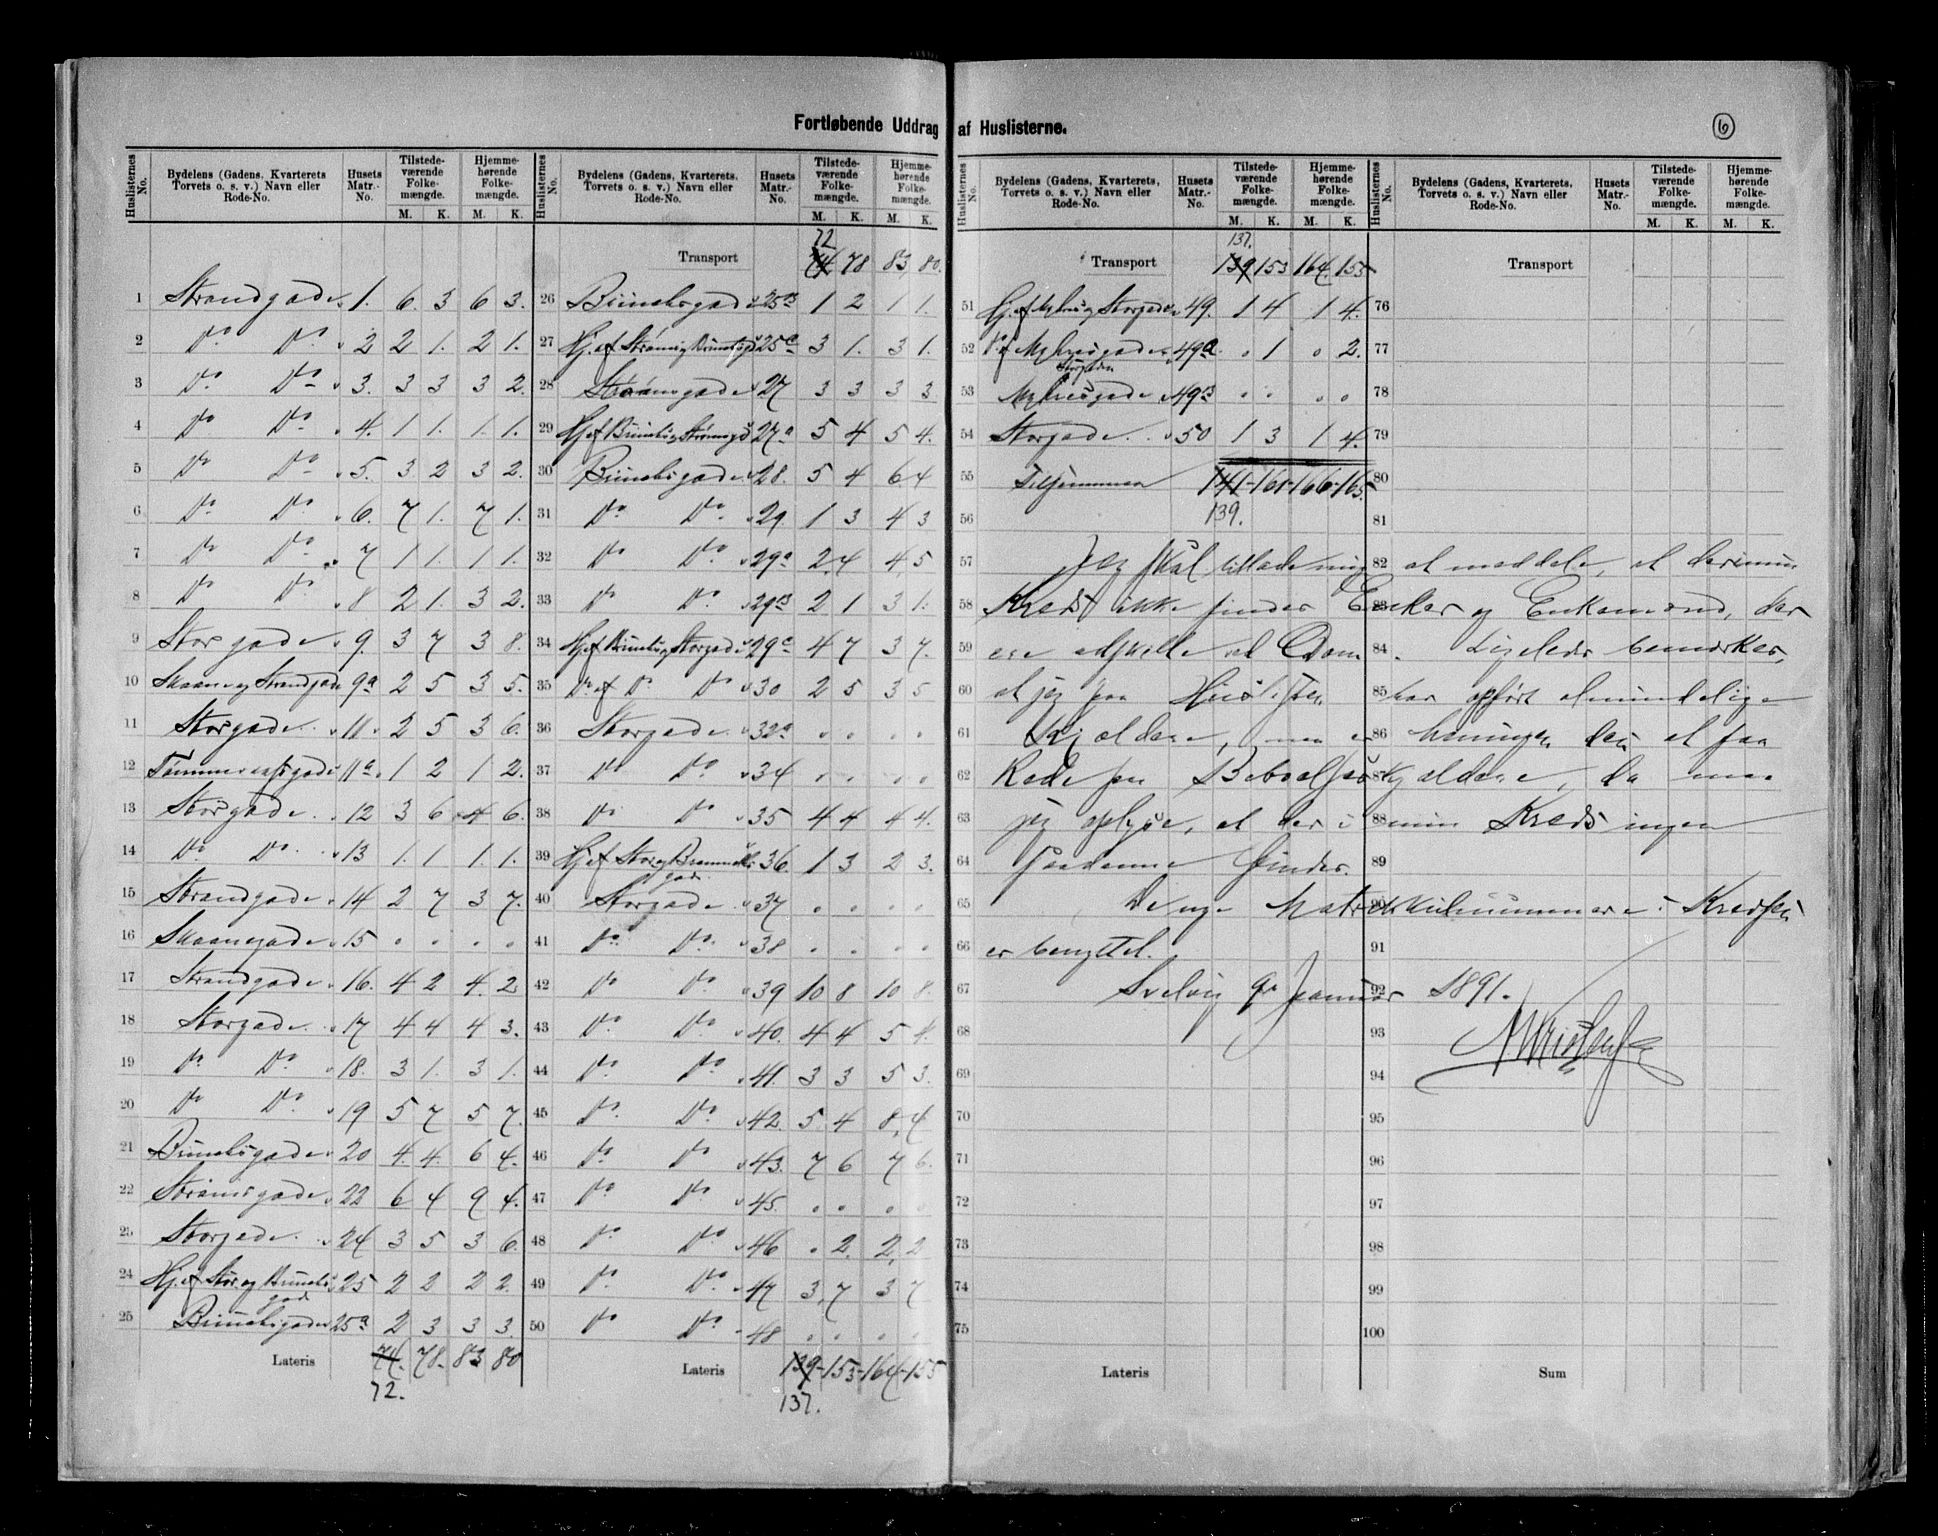 Fortløbende Uddrag af Huslisterne.
6
Huslisternes No. Bydelens (Gadens, Kvarterets, Torvets o. s. v.) Navn eller Rode-No. Husets Matr.-No. Tilstedeværende Folkemængde. M. K. Hjemmehørende Folkemængde. M. K.
1 Strandgade 1. 6. 3 6 3.
2 Do Do 2 2 1. 2 1.
3 Do Do 3. 3 3 3 2.
4 Do Do 4. 1 1. 1. 1.
5 Do Do 5. 3 2 3 2.
6 Do Do 6. 7 1. 7 1.
7 Do Do 7 1 1. 1 1.
8 Do Do 8 2 1. 3 2.
9 Storgade 9. 3 7 3 8.
10 Skaane og Strandgade 9a 2 5 3 5.
11 Storgade 11 2 5 3 6.
12 11a 1 2 1 2.
13 Storgade 12 3 6 4 6.
14 Do Do 13 1. 1 1. 1.
15 Strandgade 14 2 7 3 7.
16 Skaanegade 15 " " " "
17 Strandgade 16. 4 2 4. 2
18 Storgade 17 4 4 4 3.
19 Do Do 18. 3 1. 3 1.
20 Do Do 19 5 7 5 7.
21 20 4. 4. 6 4.
22 Strømsgade 22 6 4 9 4.
23 Storgade 24 3 5 3 6.
24 Hj. af Stor og gad 25 2 2 2 2.
25 25a 2 3 3 3.
Lateris 74. 78. 83 80
72.
72
Transport 74 78 83, 80.
26 25b 1 2 1 1.
27 Hj. af Strøms og 25c 3 1. 3 1.
28 Strømsgade 27 3 3 3 3
29 Hj. af og Strømsg 27a 5 4 5 4.
30 28. 5 4 6 4
31 Do Do 29 1 3 4 3
32 Do Do 29a 2 4 4 5
33 Do Do 29b 2 1 3 1.
34 Hj. af og Storgade 29c 4 7 3 7.
35 Do af Do Do 30 2 5 3 5
36 Storgade 32a " " " "
37 Do Do 34 " " " "
38 Do Do 35 4 4 4 4.
39 Hj. af Stor og gade 36. 1 3 2 3.
40 Storgade 37 " " " "
41 Do Do 38 " " " "
42 Do Do 39 10 8 10 8.
43 Do Do 40. 4 4 5 4.
44 Do Do 41. 3 3 5 3.
45 Do Do 42. 5 4 8, 4
46 Do Do 43. 7 6 7 6.
47 Do Do 45. " " " "
48 Do Do 46 " 2. 2, 2
49 Do Do 47 3, 7 3 7
50 Do Do 48 " " " "
Lateris 139-153-164-155
137.
137.
Transport 139 153 164. 155
51 Hj. af og Storgaden 49. 1 4 1 4.
52 Storgaden 49a " 1 " 2.
53 49b " " " "
54 Storgade 50 1 3 1 4.
55 Tilsammen 141-161-166-165.
56 139.
57 Jeg skal tillade mig at meddele, at der i min
58 Kreds ikke findes Enker og Enkemænd, der
59 ere adskilte ved Dom. Ligeledes bemærkes,
60 at jeg paa Huslisten har opført almindelige
61 Kjældere, men er meningen den at faa
62 Rede paa Beboelseskjældere, da maa
63 jeg oplyse, at der i min Kreds ingen
64 saadanne findes.
65 De nye Matrikkulnummere i Kredsen
66 er benyttet.
67 Svelvig 9de Januar 1891.
68
69
70
71
72
73
74
75
Lateris
Transport
76
77
78
79
80
81
82
83
84
85
86
87
88
89
90
91
92
93
94
95
96
97
98
99
100
Sum